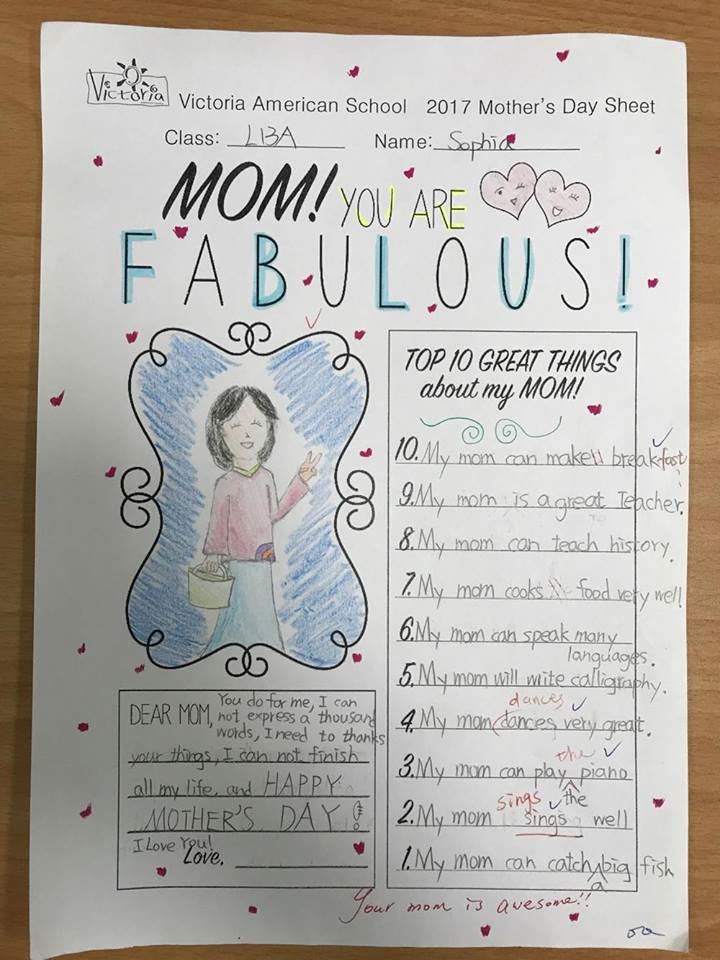 Victoria
Victoria American School 2017 Mother's Day Sheet
Class: L13A Name: Sophia
MOM! YOU ARE
FABULOUS!
TOP 10 GREAT THINGS
about my MOM!
10. My mom can make breakfast
9. My mom is a great Teacher.
8. My mom can teach history.
7. My mom cooks food very well
6. My mom can speak many
languages.
5. My mom will write calligraphy.
dances
4. My mom dances very great.
the
3. My mom can play piano
sings the
2. My mom sings well
1. My mom can catch big fish
a
DEAR MOM, You do for me, I can
not express a thousand
words, I need to thanks
your things, I can not finish
all my life, and HAPPY
MOTHER'S DAY!
I Love You!
Love,
Your mom is awesome!!